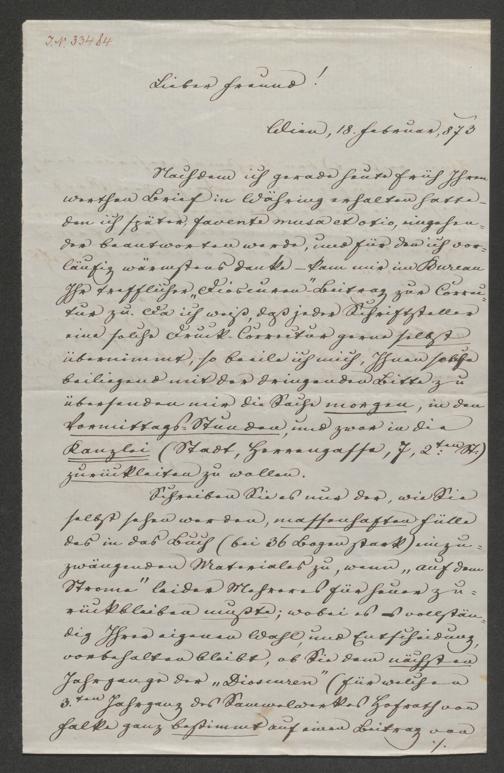 J.N. 33484
Lieber Freund!
Wien, 18. Februar, 873
Nachdem ich gerade heute früh Ihren
werthen Brief in Währing erhalten hatte –
den ich später, favente musa et otio, eingehen-
der beantworten werde, und für den ich vor-
läufig wärmstens danke – kam mir im Bureau
Ihr trefflicher „Dioscuren" Beitrag zur Correc-
tur zu. Da ich weiß, daß jeder Schriftsteller
eine solche Druck-Correctur gerne selbst
übernimmt, so beeile ich mich, Ihnen solche
beiliegend mit der dringenden Bitte zu
übersenden mir die Sache morgen, in den
Vormittags-Stunden, und zwar in die
Kanzlei (Stadt, Herrengasse, 7, 2ten St.)
zurückleiten zu wollen.
Schreiben Sie es nur der, wie Sie
selbst sehen werden, massenhaften Fülle
des in das Buch (bei 36 Bogen stark) einzu-
zwängenden Materiales zu, wenn „auf dem
Strome" leider Mehreres für heuer zu-
rückbleiben mußte; wobei es vollstän-
dig Ihrer eigenen Wahl, und Entscheidung,
vorbehalten bleibt, ob Sie dem nächsten
Jahrgange der „Dioscuren" (für welchen
3.ten Jahrgang des Sammelwerkes Hofrath von
Falke ganz bestimmt auf einen Beitrag von
./.